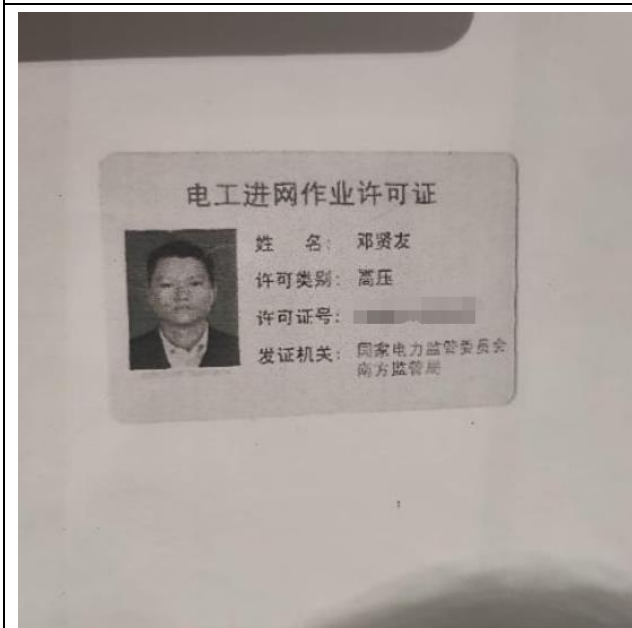 电工进网作业许可证
姓 名: 邓贤友
许可类别: 高压
许可证号:
发证机关: 国家电力监管委员会
南方监管局